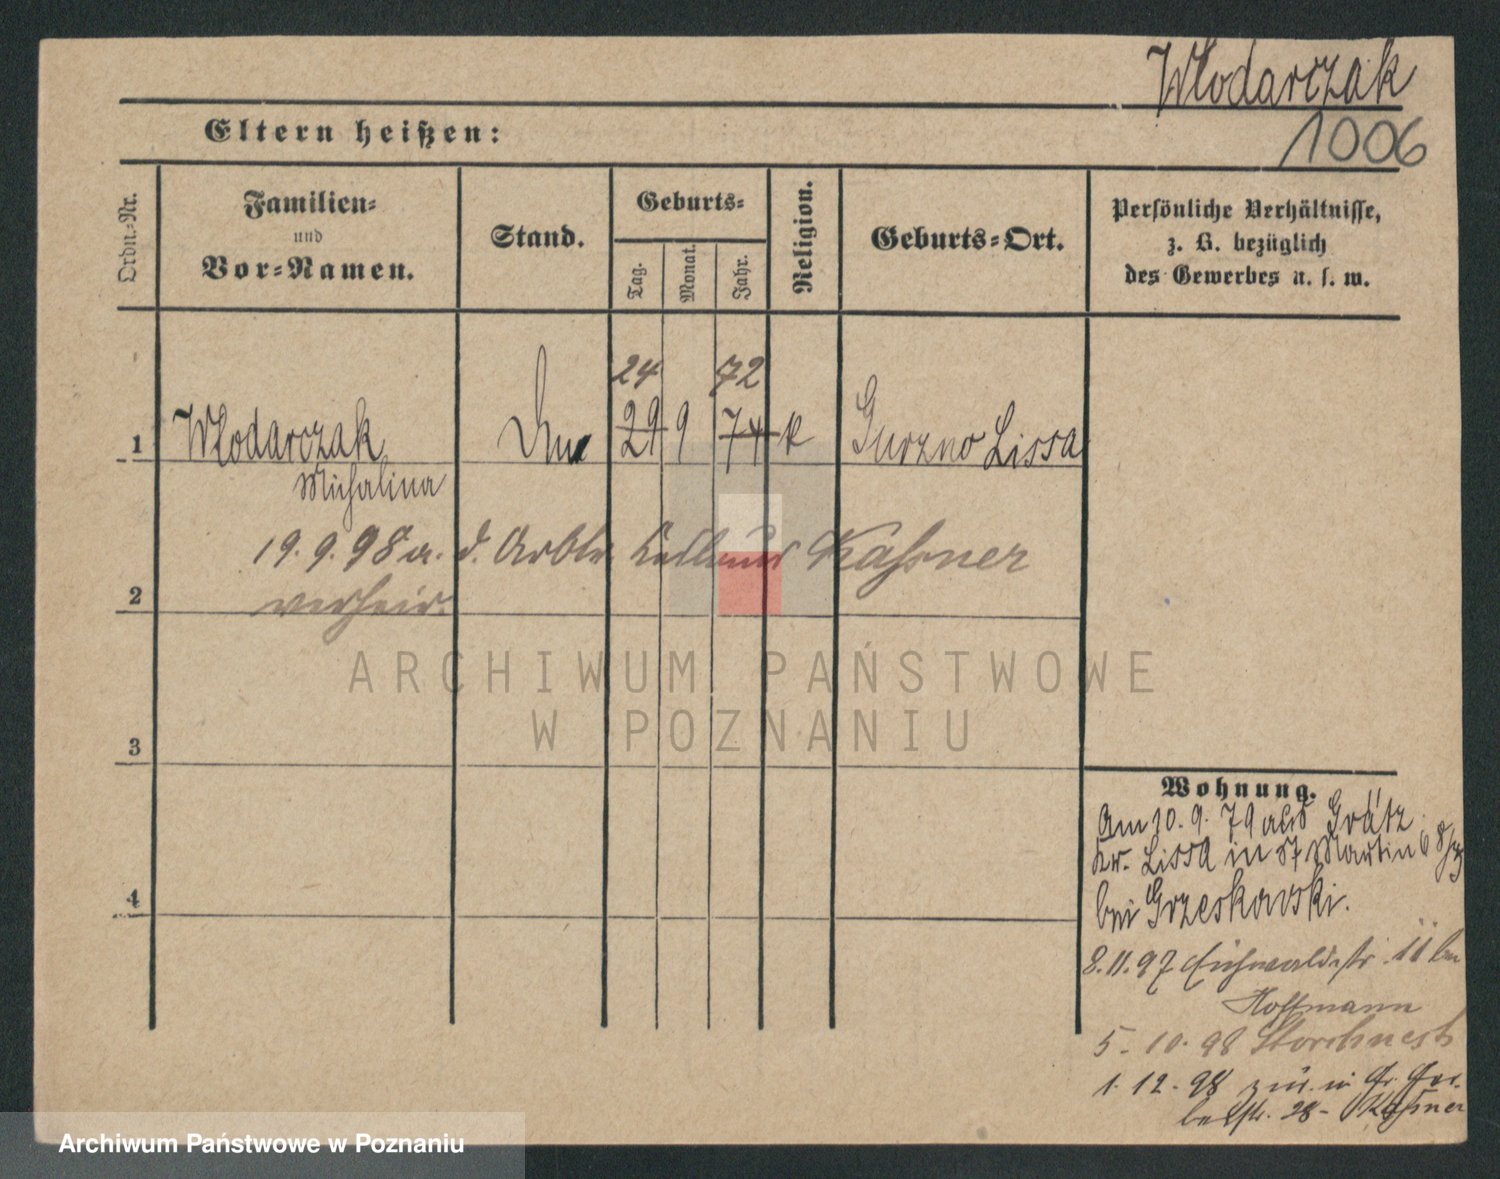 Wlodarczak
1006
Eltern heißen:
Ordn.-Nr.
Familien-
und
Vor-Namen.
Stand.
Geburts-
Tag.
Monat.
Jahr.
Religion.
Geburts-Ort.
Persönliche Verhältnisse,
z. B. bezüglich
des Gewerbes u. s. w.
24 72
1 Wlodarczak 29 9 74 k Gurzno Lissa
Michalina
19. 9. 98 a. d. Arbtr. Kassner
2 verheir.
ARCHIWUM PAŃSTWOWE
W POZNANIU
3
4
Wohnung.
Am 10. 9. 79 aus Grätz
Kr. Lissa in St Martin 68
bei Grzeskowski.
8. 11. 97 Eichwaldstr. 11 bei
Hoffmann
5. 10. 98 Storchnest
1. 12. 98 zur. in Gr. Ger-
berstr. 28 - Kassner
Archiwum Państwowe w Poznaniu